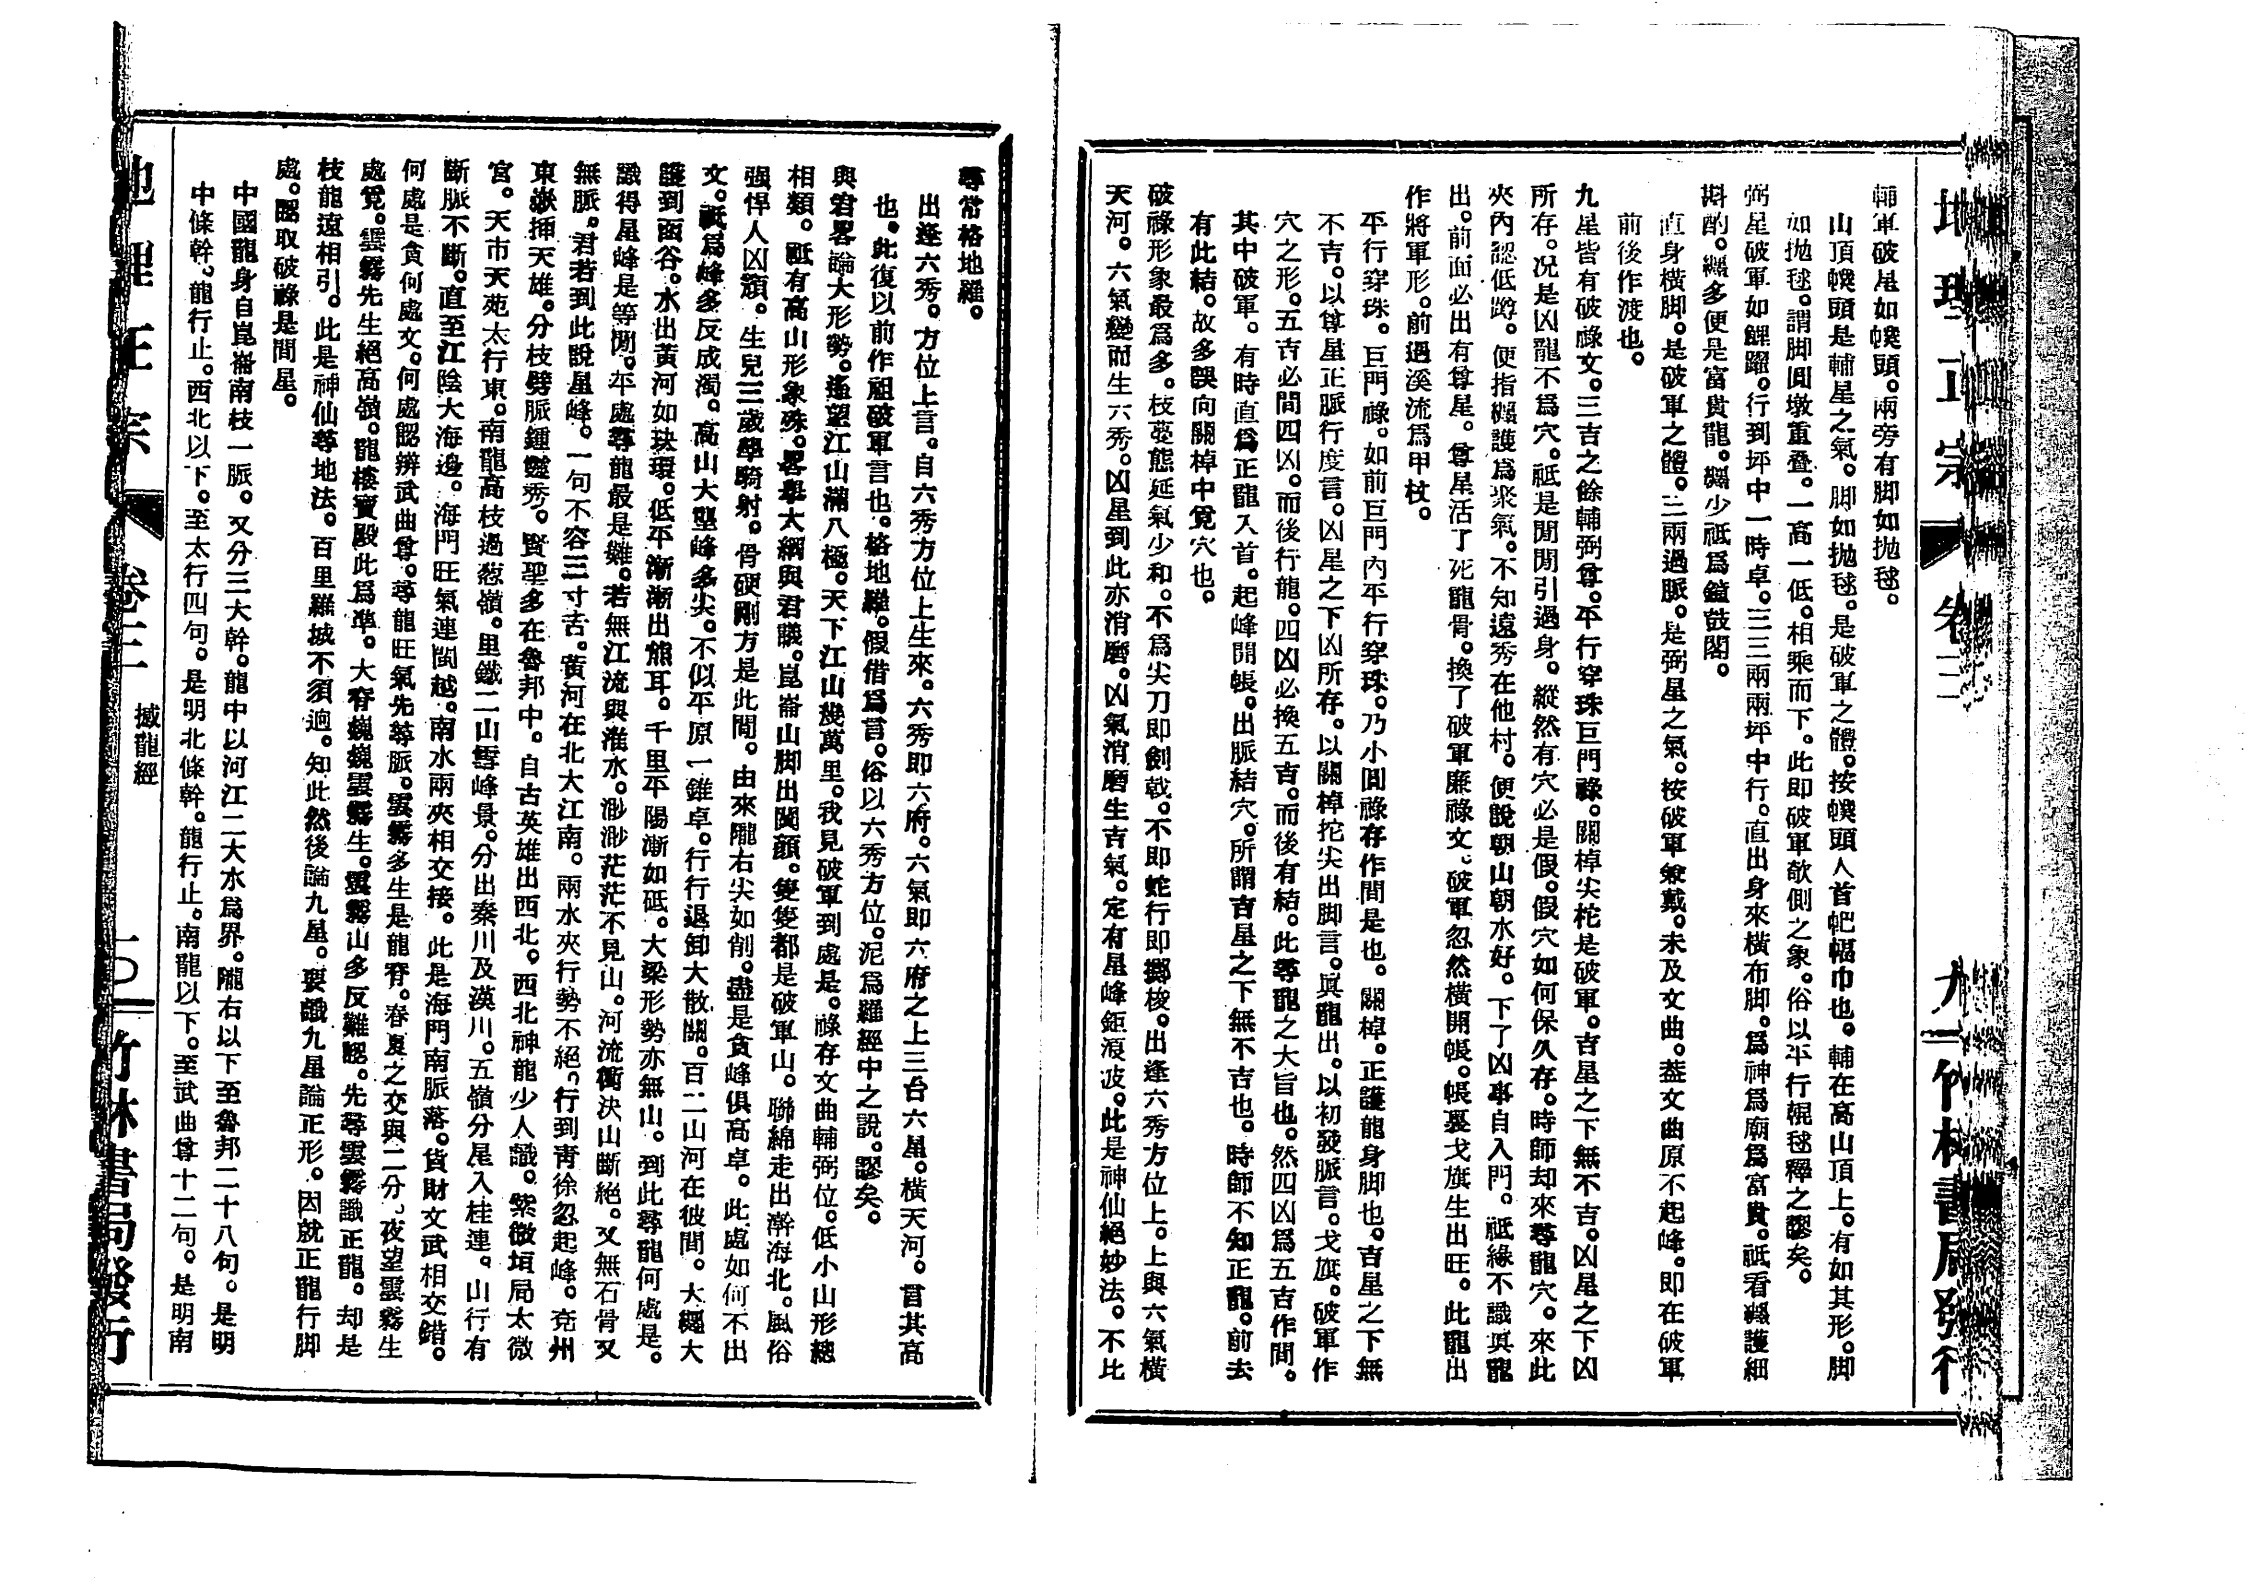 地理正宗 卷三 九 竹林書局發行
輔軍破尾如幞頭。兩旁有脚如拋毬。
山頂幞頭是輔星之氣。脚如拋毬。是破軍之體。按幞頭人首帊幅巾也。輔在高山頂上。有如其形。脚
如拋毬。謂脚圓墩重叠。一高一低。相乘而下。此即破軍欹側之象。俗以平行輥毬釋之謬矣。
弼星破軍如鯉躍。行到坪中一時卓。三三兩兩坪中行。直出身來橫布脚。爲神爲廟爲富貴。祗看纏護細
斟酌。纏多便是富貴龍。纏少祗爲鐘鼓閣。
直身橫脚。是破軍之體。三兩過脈。是弼星之氣。按破軍兼戴。未及文曲。葢文曲原不起峰。即在破軍
前後作渡也。
九星皆有破祿文。三吉之餘輔弼尊。平行穿珠巨門祿。關棹尖柁是破軍。吉星之下無不吉。凶星之下凶
所存。况是凶龍不爲穴。祗是閒閒引過身。縱然有穴必是假。假穴如何保久存。時師却來尋龍穴。來此
夾內認低蹲。便指纏護爲衆氣。不知遠秀在他村。便說朝山朝水好。下了凶事自入門。祗緣不識眞龍
出。前面必出有尊星。尊星活了死龍骨。換了破軍廉祿文。破軍忽然橫開帳。帳裏戈旗生出旺。此龍出
作將軍形。前過溪流爲甲杖。
平行穿珠。巨門祿。如前巨門內平行穿珠。乃小圓祿存作間是也。關棹。正護龍身脚也。吉星之下無
不吉。以尊星正脈行度言。凶星之下凶所存。以關棹拕尖出脚言。眞龍出。以初發脈言。戈旗。破軍作
穴之形。五吉必間四凶。而後行龍。四凶必換五吉。而後有結。此尋龍之大旨也。然四凶爲五吉作間。
其中破軍。有時直爲正龍入首。起峰開帳。出脈結穴。所謂吉星之下無不吉也。時師不知正龍。前去
有此結。故多誤向關棹中覓穴也。
破祿形象最爲多。枝蔓熊延氣少和。不爲尖刀即劍戟。不即蛇行即擲梭。出逢六秀方位上。上與六氣橫
天河。六氣變而生六秀。凶星到此亦消磨。凶氣消磨生吉氣。定有星峰鉅浪波。此是神仙絕妙法。不比
尋常格地羅。
出逢六秀。方位上言。自六秀方位上生來。六秀即六府。六氣即六府之上三台六星。橫天河。言其高
也。此復以前作祖破軍言也。格地羅。假借爲言。俗以六秀方位。泥爲羅經中之說。謬矣。
與君畧論大形勢。遙望江山滿八極。天下江山幾萬里。我見破軍到處是。祿存文曲輔弼位。低小山形總
相類。祗有高山形象殊。畧舉大綱與君議。崑崙山脚出闐顔。隻隻都是破軍山。聯綿走出瀚海北。風俗
强悍人凶頑。生兒三歲學騎射。骨硬剛方是此間。由來隴右尖如削。盡是貪峰俱高卓。此處如何不出
文。祗爲峰多反成濁。高山大壟峰多尖。不似平原一錐卓。行行退卸大散關。百二山河在彼間。大纏大
護到函谷。水出黃河如玦環。低平漸漸出熊耳。千里平陽漸如砥。大梁形勢亦無山。到此尋龍何處是。
識得星峰是等閒。平處尋龍最是難。若無江流與淮水。渺渺茫茫不見山。河流衝決山斷絕。又無石骨又
無脈。君若到此說星峰。一句不容三寸舌。黃河在北大江南。兩水夾行勢不絕。行到青徐忽起峰。兗州
東嶽插天雄。分枝劈脈鍾靈秀。賢聖多在魯邦中。自古英雄出西北。西北神龍少人識。紫微垣局太微
宮。天市天苑太行東。南龍高枝過葱嶺。里鐵二山雪峰景。分出秦川及漢川。五嶺分星入桂連。山行有
斷脈不斷。直至江陰大海邊。海門旺氣連閩越。南水兩夾相交接。此是海門南脈落。貨財文武相交錯。
何處是貪何處文。何處認辨武曲尊。尋龍旺氣先尋脈。雲霧多生是龍脊。春夏之交與二分。夜望雲霧生
處覓。雲霧先生絕高嶺。龍樓寶殿此爲準。大脊巍巍雲霧生。雲霧山多反難認。先尋雲霧識正龍。却是
枝龍遠相引。此是神仙尋地法。百里羅城不須逈。知此然後論九星。要識九星論正形。因就正龍行脚
處。認取破祿是間星。
中國龍身自崑崙南枝一脈。又分三大幹。龍中以河江二大水爲界。隴右以下至魯邦二十八句。是明
中條幹。龍行止。西北以下。至太行四句。是明北條幹。龍行止。南龍以下。至武曲尊十二句。是明南
地理正宗 卷三 撼龍經 一〇 竹林書局發行